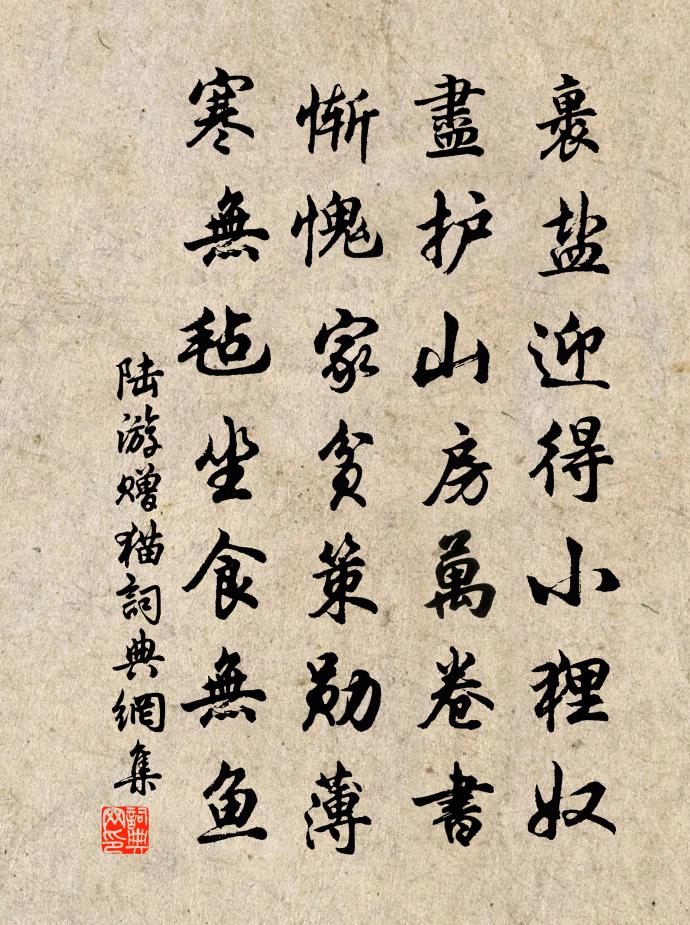 裹盐迎得小狸奴
盡护山房萬卷書
惭愧家贫策勋薄
寒無毡坐食無鱼
陆游赠猫詞典網集
詞典網印